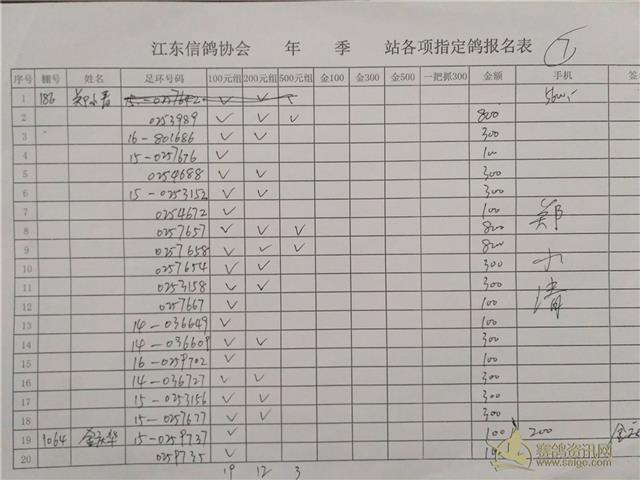 江东信鸽协会 年 季 站各项指定鸽报名表 7
序号 棚号 姓名 足环号码 100元组 200元组 500元组 金100 金300 金500 一把抓300 金额 手机 签
1 186 15-0257642 ✓ ✓
2 0253989 ✓ ✓ ✓ 800
3 16-801686 ✓ ✓ 300
4 15-0257676 ✓ 100
5 0254688 ✓ ✓ 300
6 15-0253152 ✓ ✓ 300
7 0254672 ✓ 100 郑
8 0257657 ✓ ✓ ✓ 800
9 0257658 ✓ ✓ ✓ 800
10 0257654 ✓ ✓ 300
11 0253158 ✓ ✓ 300
12 0257667 ✓ 100
13 14-036649 ✓ 100
14 14-036609 ✓ ✓ 300
15 16-0259702 ✓ 100
16 14-036727 ✓ ✓ 300
17 15-0253156 ✓ ✓ 300
18 15-0257677 ✓ ✓ 300
19 1064 15-0259737 ✓ 100 200
20 0259735 ✓
19 12 3
赛鸽资讯网
www.saige.com